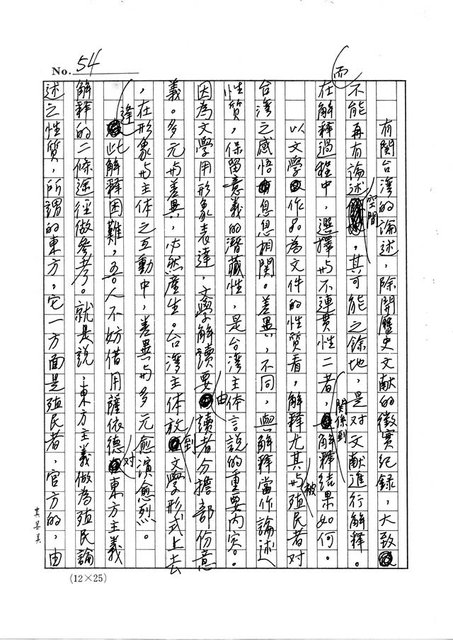 No. 54
有關台灣的論述，除開歷史文獻的徵實紀錄，大致
不能再有論述空間，其可能之餘地，是对文献進行解釋。而
在解釋過程中，選擇与不連貫性二者，關係到解釋結果如何。
以文学作品為文件的性質看，解釋尤其与被殖民者对
台湾之感悟息息相関。差異、不同，與解釋當作論述
性質，保留意義的潛藏性，是台湾主体言說的重要内容。
因為文学用形象表達，文学解讀要由讀者分擔部份意
義。多元与差異，必然產生。台湾主体放到文学形式上去
，在形象与主体之互動中，差異与多元愈演愈烈。
逢此解釋困難，吾人不妨借用薩依德对東方主義
解釋的二條途徑做參考。就是說，東方主義做為殖民論
述之性質，所謂的東方，它一方面是殖民者，官方的，由
(12×25)